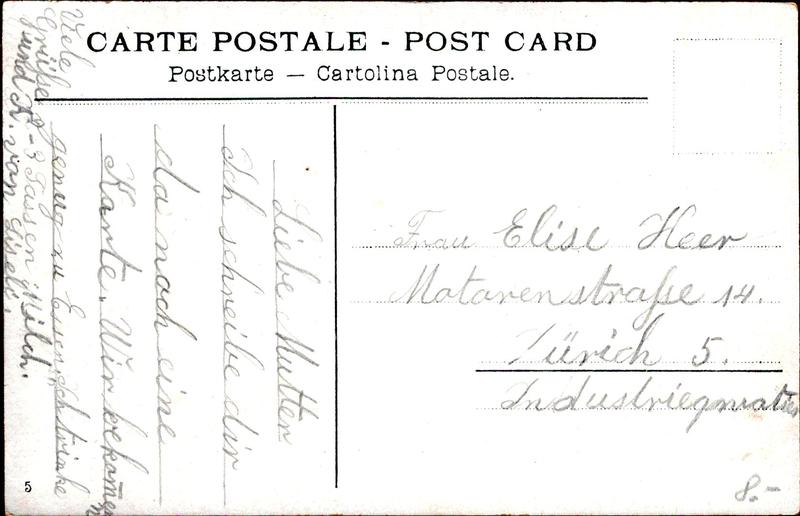 CARTE POSTALE - POST CARD
Postkarte — Cartolina Postale.
Liebe Mutter
Ich schreibe dir
da noch eine
Karte. Wir bekom̅en
genug zu Essen, Ich trinke
2-3 Tassen Milch.
Viele
Grüsse
und K. von
Frau Elise Heer
Motorenstraße 14.
Zürich 5.
Industriequartier
8.-
5